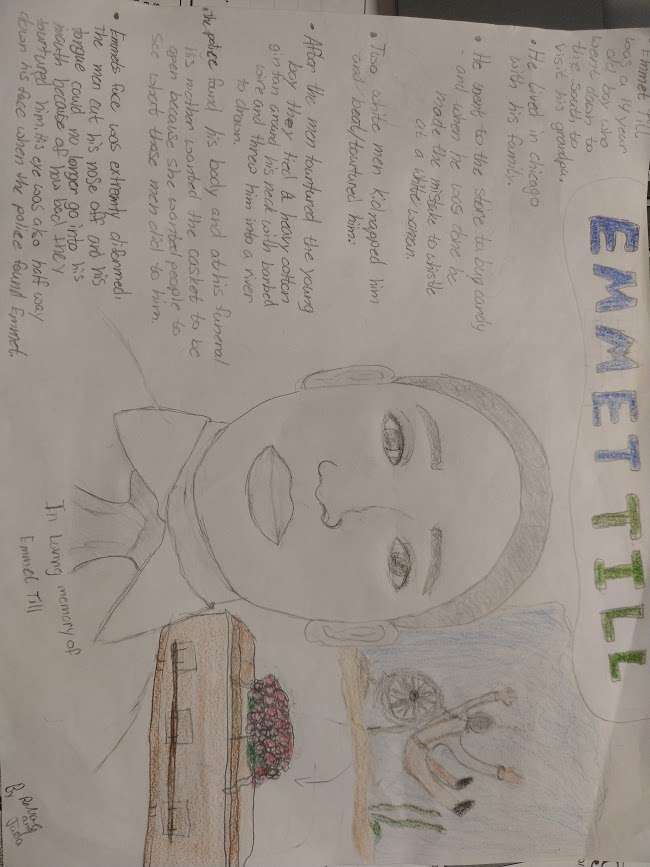 EMMET TILL
Emmet Till
was a 14 year
old boy who
went down to
the south to
visit his grandpa.
• He lived in chicago
with his family.
• He went to the store to buy candy
and when he was done he
made the mistake to whistle
at a white women.
• Two white men kidnapped him
and beat/tourtured him.
• After the men tourtured the young
boy they tied a heavy cotton
gin fan around his neck with barbed
wire and threw him into a river
to drown.
• The police found his body and at his funeral
his mother wanted the casket to be
open because she wanted people to
see what these men did to him.
• Emmets face was extremly disformed.
The men cut his nose off and his
tongue could no longer go into his
mouth because of how bad they
tourtured him. His eye was also half way
down his face when the police found Emmet.
In loving memory of
Emmet Till
By
and